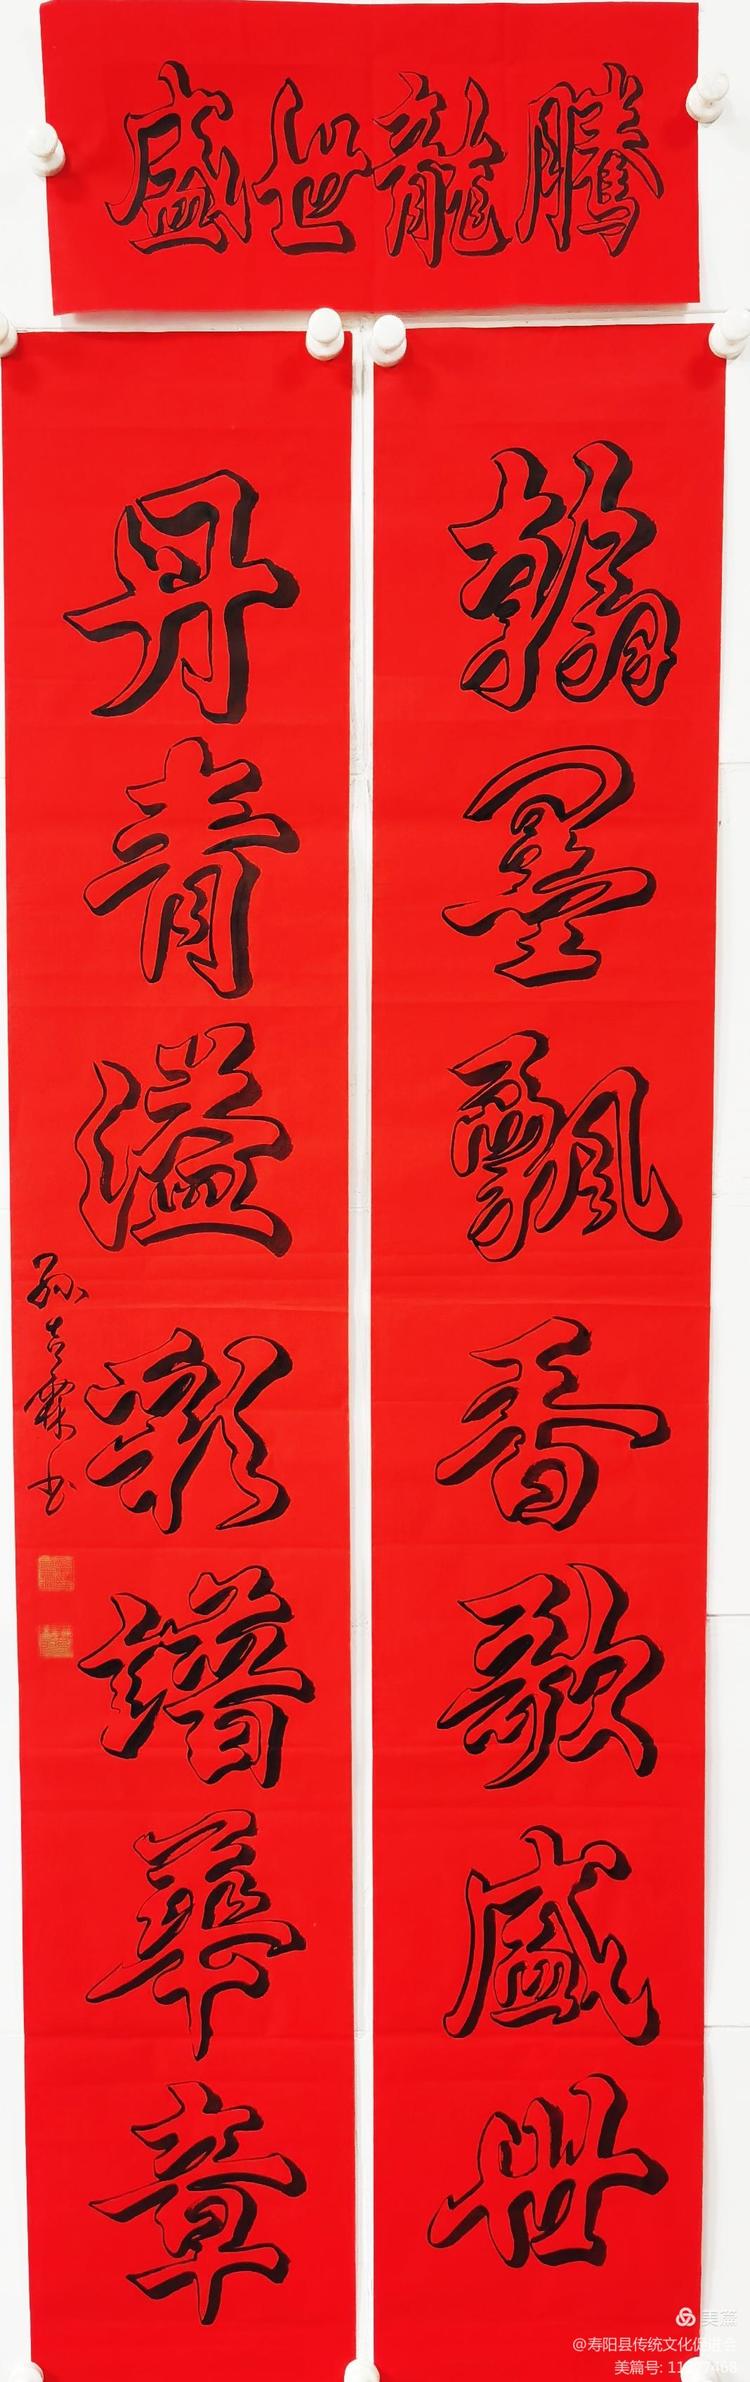 盛世龍騰
翰墨飄香歌盛世
丹青溢彩譜華章
孙吉霖书
美篇
@寿阳县传统文化促进会
美篇号: